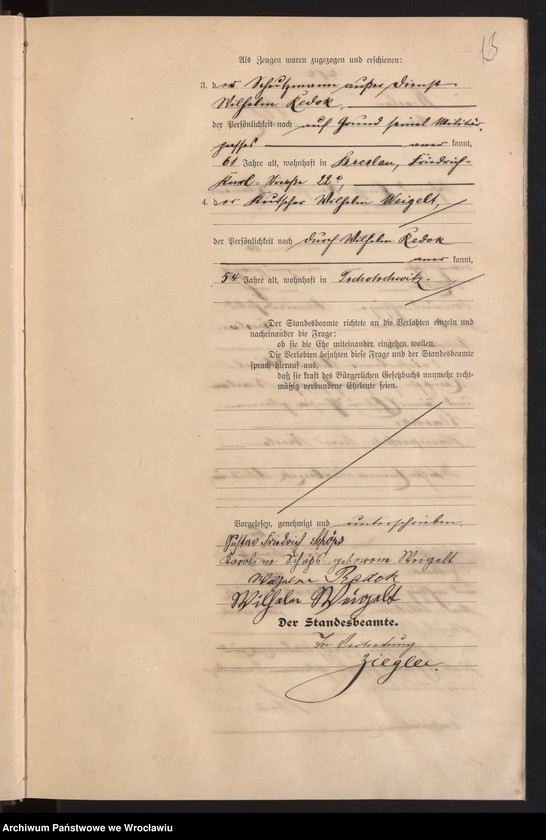 13
Als Zeugen waren zugezogen und erschienen:
3. der Schutzmann außer Dienst
Wilhelm Redok,
der Persönlichkeit nach auf Grund seines Militär-
passes aner kannt,
61 Jahre alt, wohnhaft in Breslau, Friedrich-
Karl-Straße 22
4. der Kutscher Wilhelm Weigelt,
der Persönlichkeit nach durch Wilhelm Redok
aner kannt,
54 Jahre alt, wohnhaft in Tschotschwitz.
Der Standesbeamte richtete an die Verlobten einzeln und
nacheinander die Frage:
ob sie die Ehe miteinander eingehen wollen.
Die Verlobten bejahten diese Frage und der Standesbeamte
sprach hierauf aus,
daß sie kraft des Bürgerlichen Gesetzbuchs nunmehr recht-
mäßig verbundene Eheleute seien.
Vorgelesen, genehmigt und unterschrieben.
Gustav Friedrich Schöps
Karoline Schöps geborene Weigelt
Wilhelm Redok
Wilhelm Weigelt
Der Standesbeamte.
In Vertretung
Ziegler.
Archiwum Państwowe we Wrocławiu